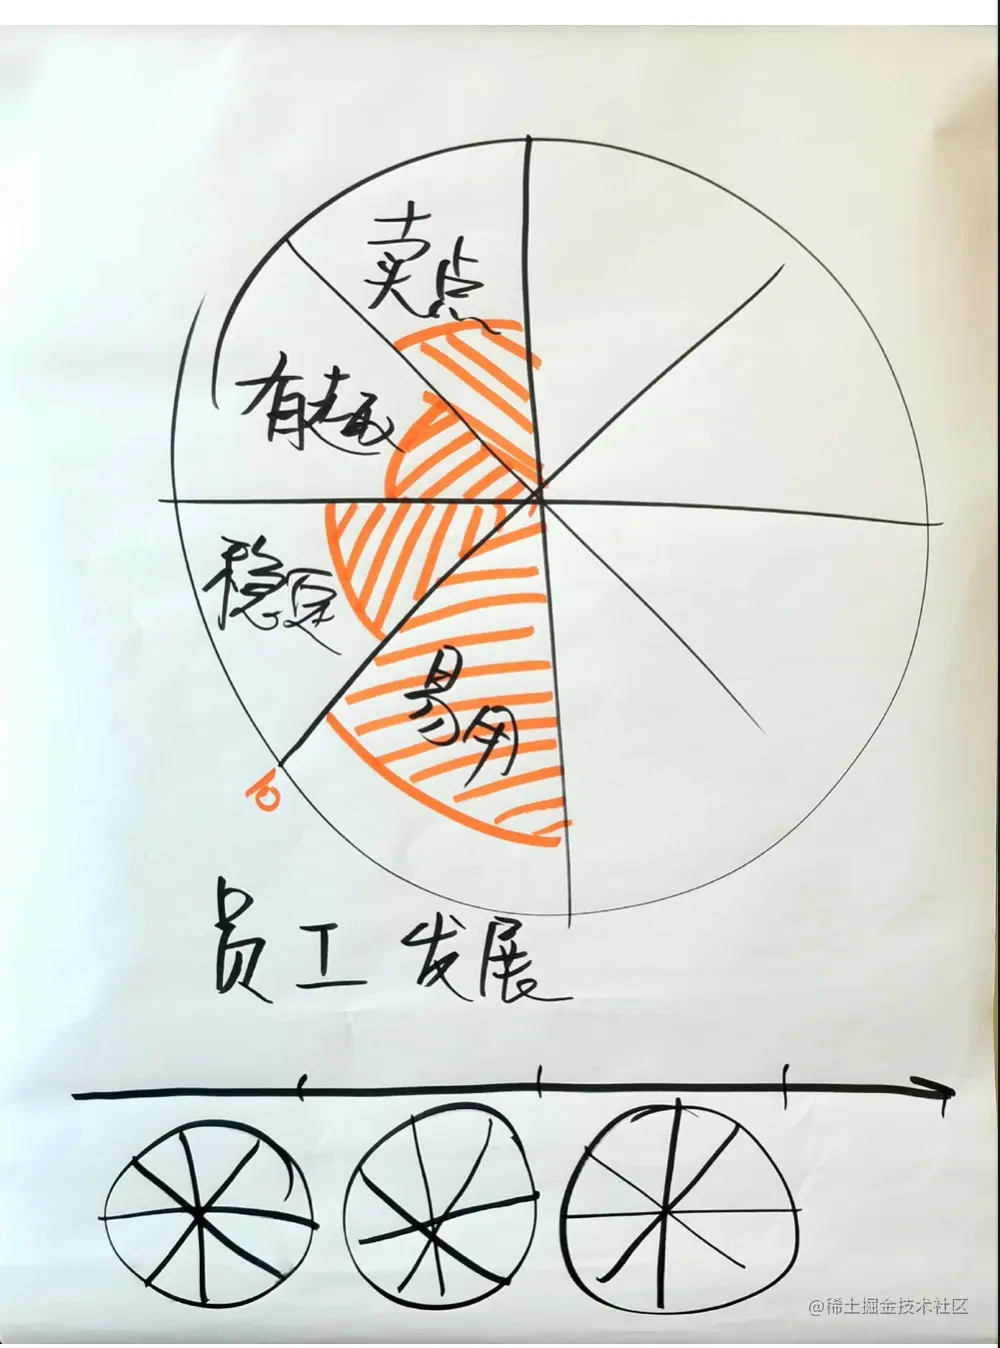 卖点
有趣
稳定
易用
员工 发展
@稀土掘金技术社区